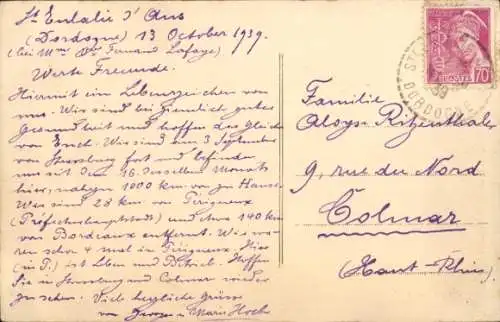 St Eulalie d'Ans
(Dordogne) 13 October 1939.
(bei Mme Vve Fernand Lafaye)
Werte Freunde.
Hiermit ein Lebenszeichen von
uns. Wir sind bei ziemlich gutes
Gesundheit und hoffen das Gleiche
von Euch. Wir sind am 3 September
von Strassburg fort und befinden
uns seit dem 16. desselben Monats
hier, nahezu 1000 km. von zu Hause.
Wir sind 28 km. von Périgueux
(Präfecturhauptstadt) und etwa 140 km
von Bordeaux entfernt. Wir wa-
ren schon 4 mal in Périgueux. Hier
(in P.) ist Leben und Betrieb. Hoffen
Sie in Strassburg und Colmar wieder
zu sehen. Viele herzliche Grüsse
von Georges u Marie Hoch
Familie
Aloys Ritzenthaler
9, rue du Nord
Colmar
(Haut-Rhin)
70
POSTES
DORDOGNE